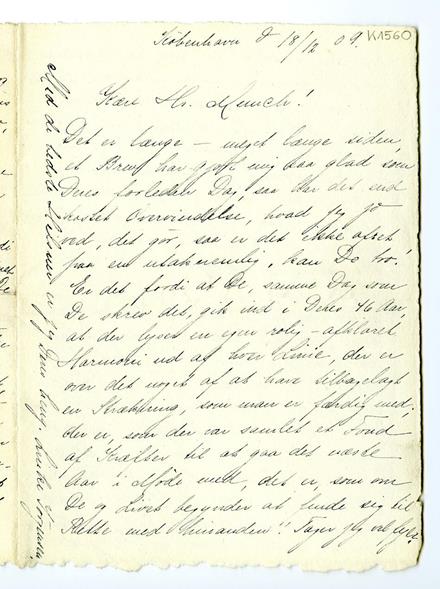 København d 18/12 09.
K1560
Kære Hr. Munch!
Det er længe – meget længe siden,
et Brev har gjort mig saa glad som
Deres forleden Dag, saa har det end
kostet Overvindelse, hvad jeg jo
ved, det gør, saa er det ikke ofret
paa en utaknemlig, kan De tro!
Er det fordi at De, samme Dag som
De skrev det, gik ind i Deres 46 Aar,
at der lyser en egen rolig – afklaret
Harmoni ud af hver Linie, der er
over det noget af at have tilbagelagt
en Strækning, som man er færdig med,
der er, som der var samlet et Fond
af Kræfter til at gaa det næste
Aar i Møde med, det er, som om
De og Livet begynder at finde sig til
Rette med hinanden! Tager jeg vel fejl?
Med de bedste Hilsener er jeg Deres heng.